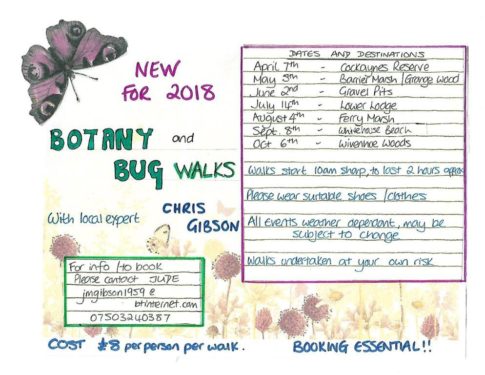 NEW
FOR 2018
BOTANY and
BUG WALKS
With local expert CHRIS
GIBSON
For info / to book
Please contact JUDE
jmgibson1959 @
btinternet.com
07503240387
COST £8 per person per walk.
DATES AND DESTINATIONS
April 7th - Cockaynes Reserve
May 5th - Barrier Marsh / Grange Wood
June 2nd - Gravel Pits
July 14th - Lower Lodge
August 4th - Ferry Marsh
Sept. 8th - Whitehouse Beach
Oct 6th - Wivenhoe Woods
Walks start 10am sharp, to last 2 hours approx
Please wear suitable shoes / clothes
All Events weather dependant, may be
subject to change
Walks undertaken at your own risk
BOOKING ESSENTIAL!!